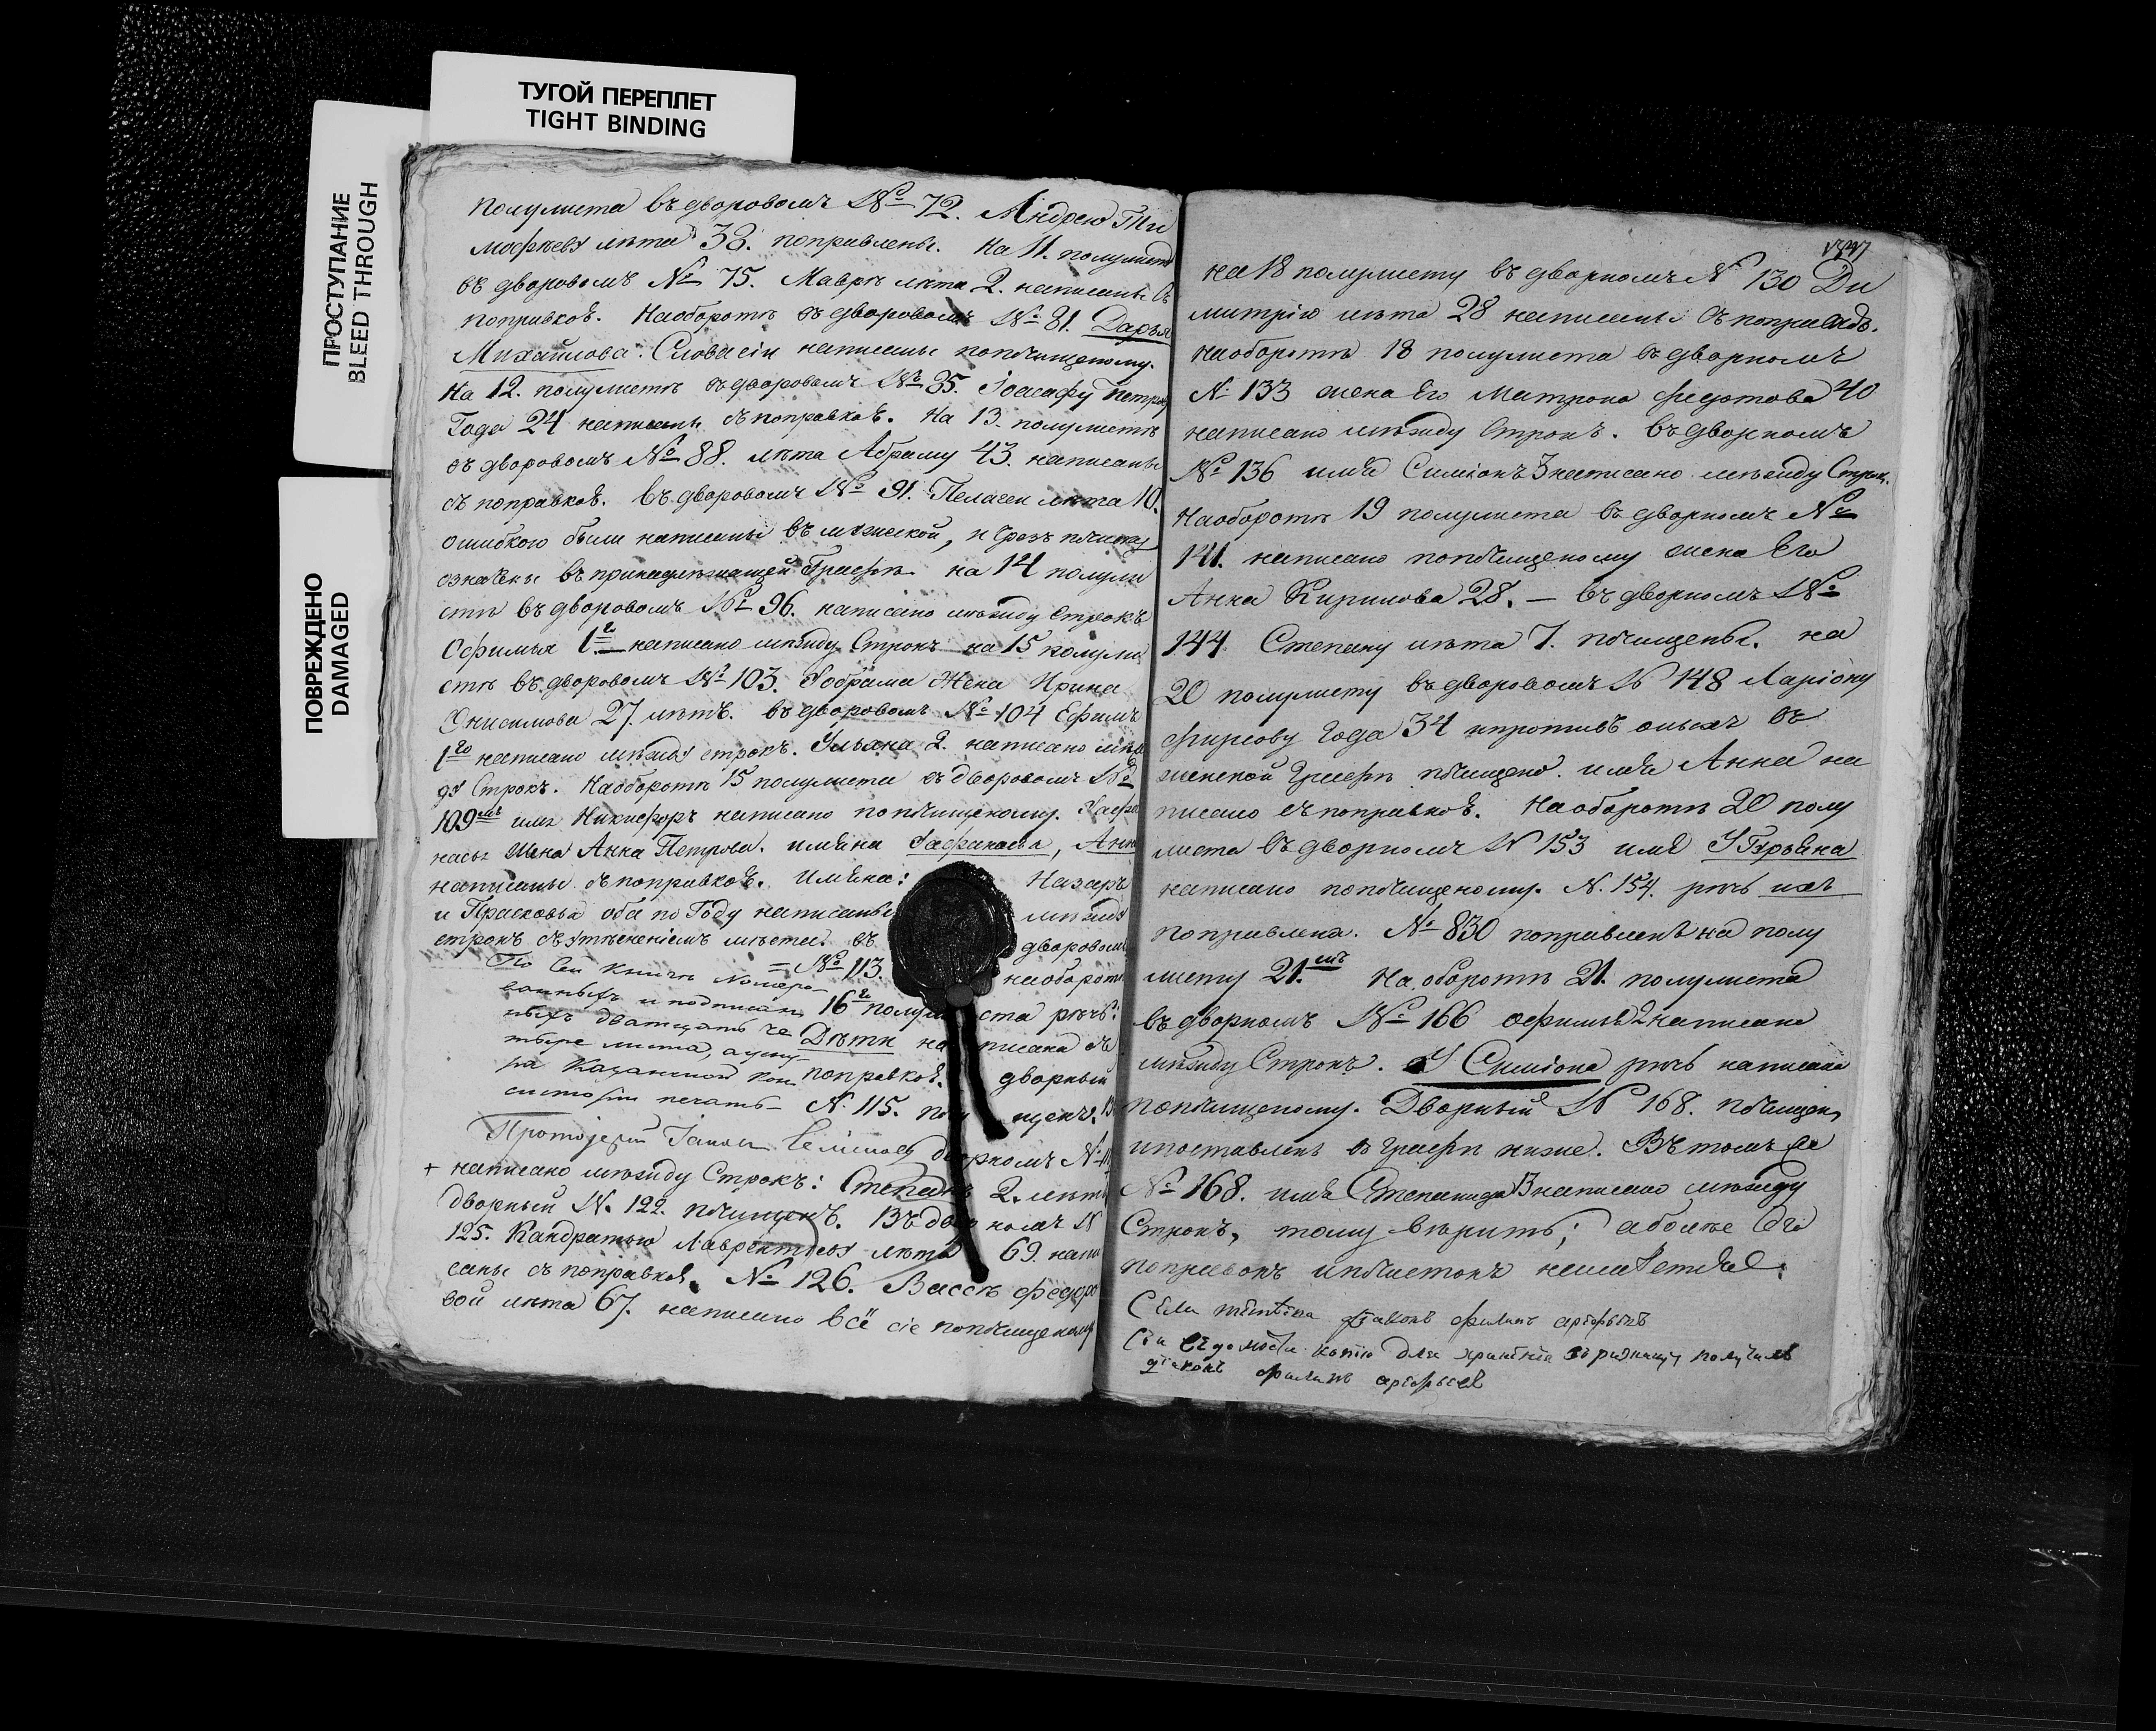 ТУГОЙ ПЕРЕПЛЕТ
TIGHT BINDING
ПРОСТУПАНИЕ
BLEED THROUGH
ПОВРЕЖДЕНО
DAMAGED
полулиста въ дворовомъ № 72. Андрею Ти
мофѣеву лѣта 38. поправлены. На 11. полулистѣ
въ дворовомъ № 75. Маврѣ лѣта 2. написаны съ
поправкой. На оборотѣ въ дворовомъ № 81. Дарья
Михайлова. Слова сіи написаны поп҆чищеному.
На 12. полулистѣ въ дворовомъ № 85. Іоасафу Петрову
Года 24 написаны съ поправкой. На 13. полулистѣ
въ дворовомъ № 88. лѣта Абраму 43. написаны
съ поправкой. Въ дворовомъ № 91. Пелагеи лѣта 10.
ошибкою были написаны въ мужеской, и чрезъ
означены въ принадлежащей Графѣ на 14 полули
стѣ въ дворовомъ № 96. написано между строкъ
Офимья 1. написано между Строкъ на 15 полули
стѣ въ дворовомъ № 103. Жена Ирина
Онисимова 27. лѣтъ. въ дворовомъ № 104 Ефимъ
1го написано между строкъ. Ульяна 2. написано меж
ду Строкъ. На оборотѣ 15 полулиста въ дворовомъ №
109мъ имя Никифоръ написано
жена Анна Петрова. имѣна Анна
написаны съ поправкой. Имѣна: Назаръ
и Прасковья оба по Году написаны между
строкъ съ утѣсненіемъ мѣста. въ дворовомъ
= № 113. на оборотѣ
16го полулиста рѣчь:
Дѣти написана съ
поправкой. дворный
N. 115.
По сей книгѣ нумеро
ванныхъ и подписан
ныхъ дватцать че
тыре листа, а у шну
ра Казанской кон
систоріи печать
Протоіерей дворномъ №
+ написано между Строкъ: Степанъ 2. лѣтъ
дворный N. 122. Въ дворномъ N
125. Кандратью Лаврентьеву лѣта 69. напи
саны съ поправкой. № 126. Вассѣ Федоро
вой лѣта 67. написано всё сіе
на 18 полулисту въ дворномъ N 130 Ди
митрію лѣта 28 написаны съ поправкъ.
на оборотѣ 18 полулиста въ дворномъ
N. 133 жена Его Матрона Федотова 40
написано между Строкъ. въ дворномъ
№ 136 имя Симіонъ 3 написано между Строк.
На оборотѣ 19 полулиста въ дворномъ №
141. написано жена Его
Анна Кирилова 28. — въ дворномъ №
144 Степану лѣта 7. на
20 полулисту въ дворовомъ N 148 Ларіону
Фирсову Года 34 и противъ оныхъ въ
женской Графѣ имя Анна на
писано съ поправкой. На оборотѣ 20 полу
листа въ дворномъ N 153 имя
написано N. 154. рѣчь ихъ
поправлена. № 830 поправленъ на полу
листу 21.мъ На оборотѣ 21. полулиста
въ дворномъ № 166 Офимья 2 написана
между Строкъ. У Симіона рѣчь написана
Дворный N 168.
и поставленъ въ Графѣ ниже. Въ томъ же
№ 168. имя Степанида 13 написано между
Строкъ, тому вѣрить; а болѣе сего
поправокъ и неимѣется.
діаконъ Филипъ
Сіи вѣдомости копію для храненія въ ризницу получилъ
діаконъ Филипъ